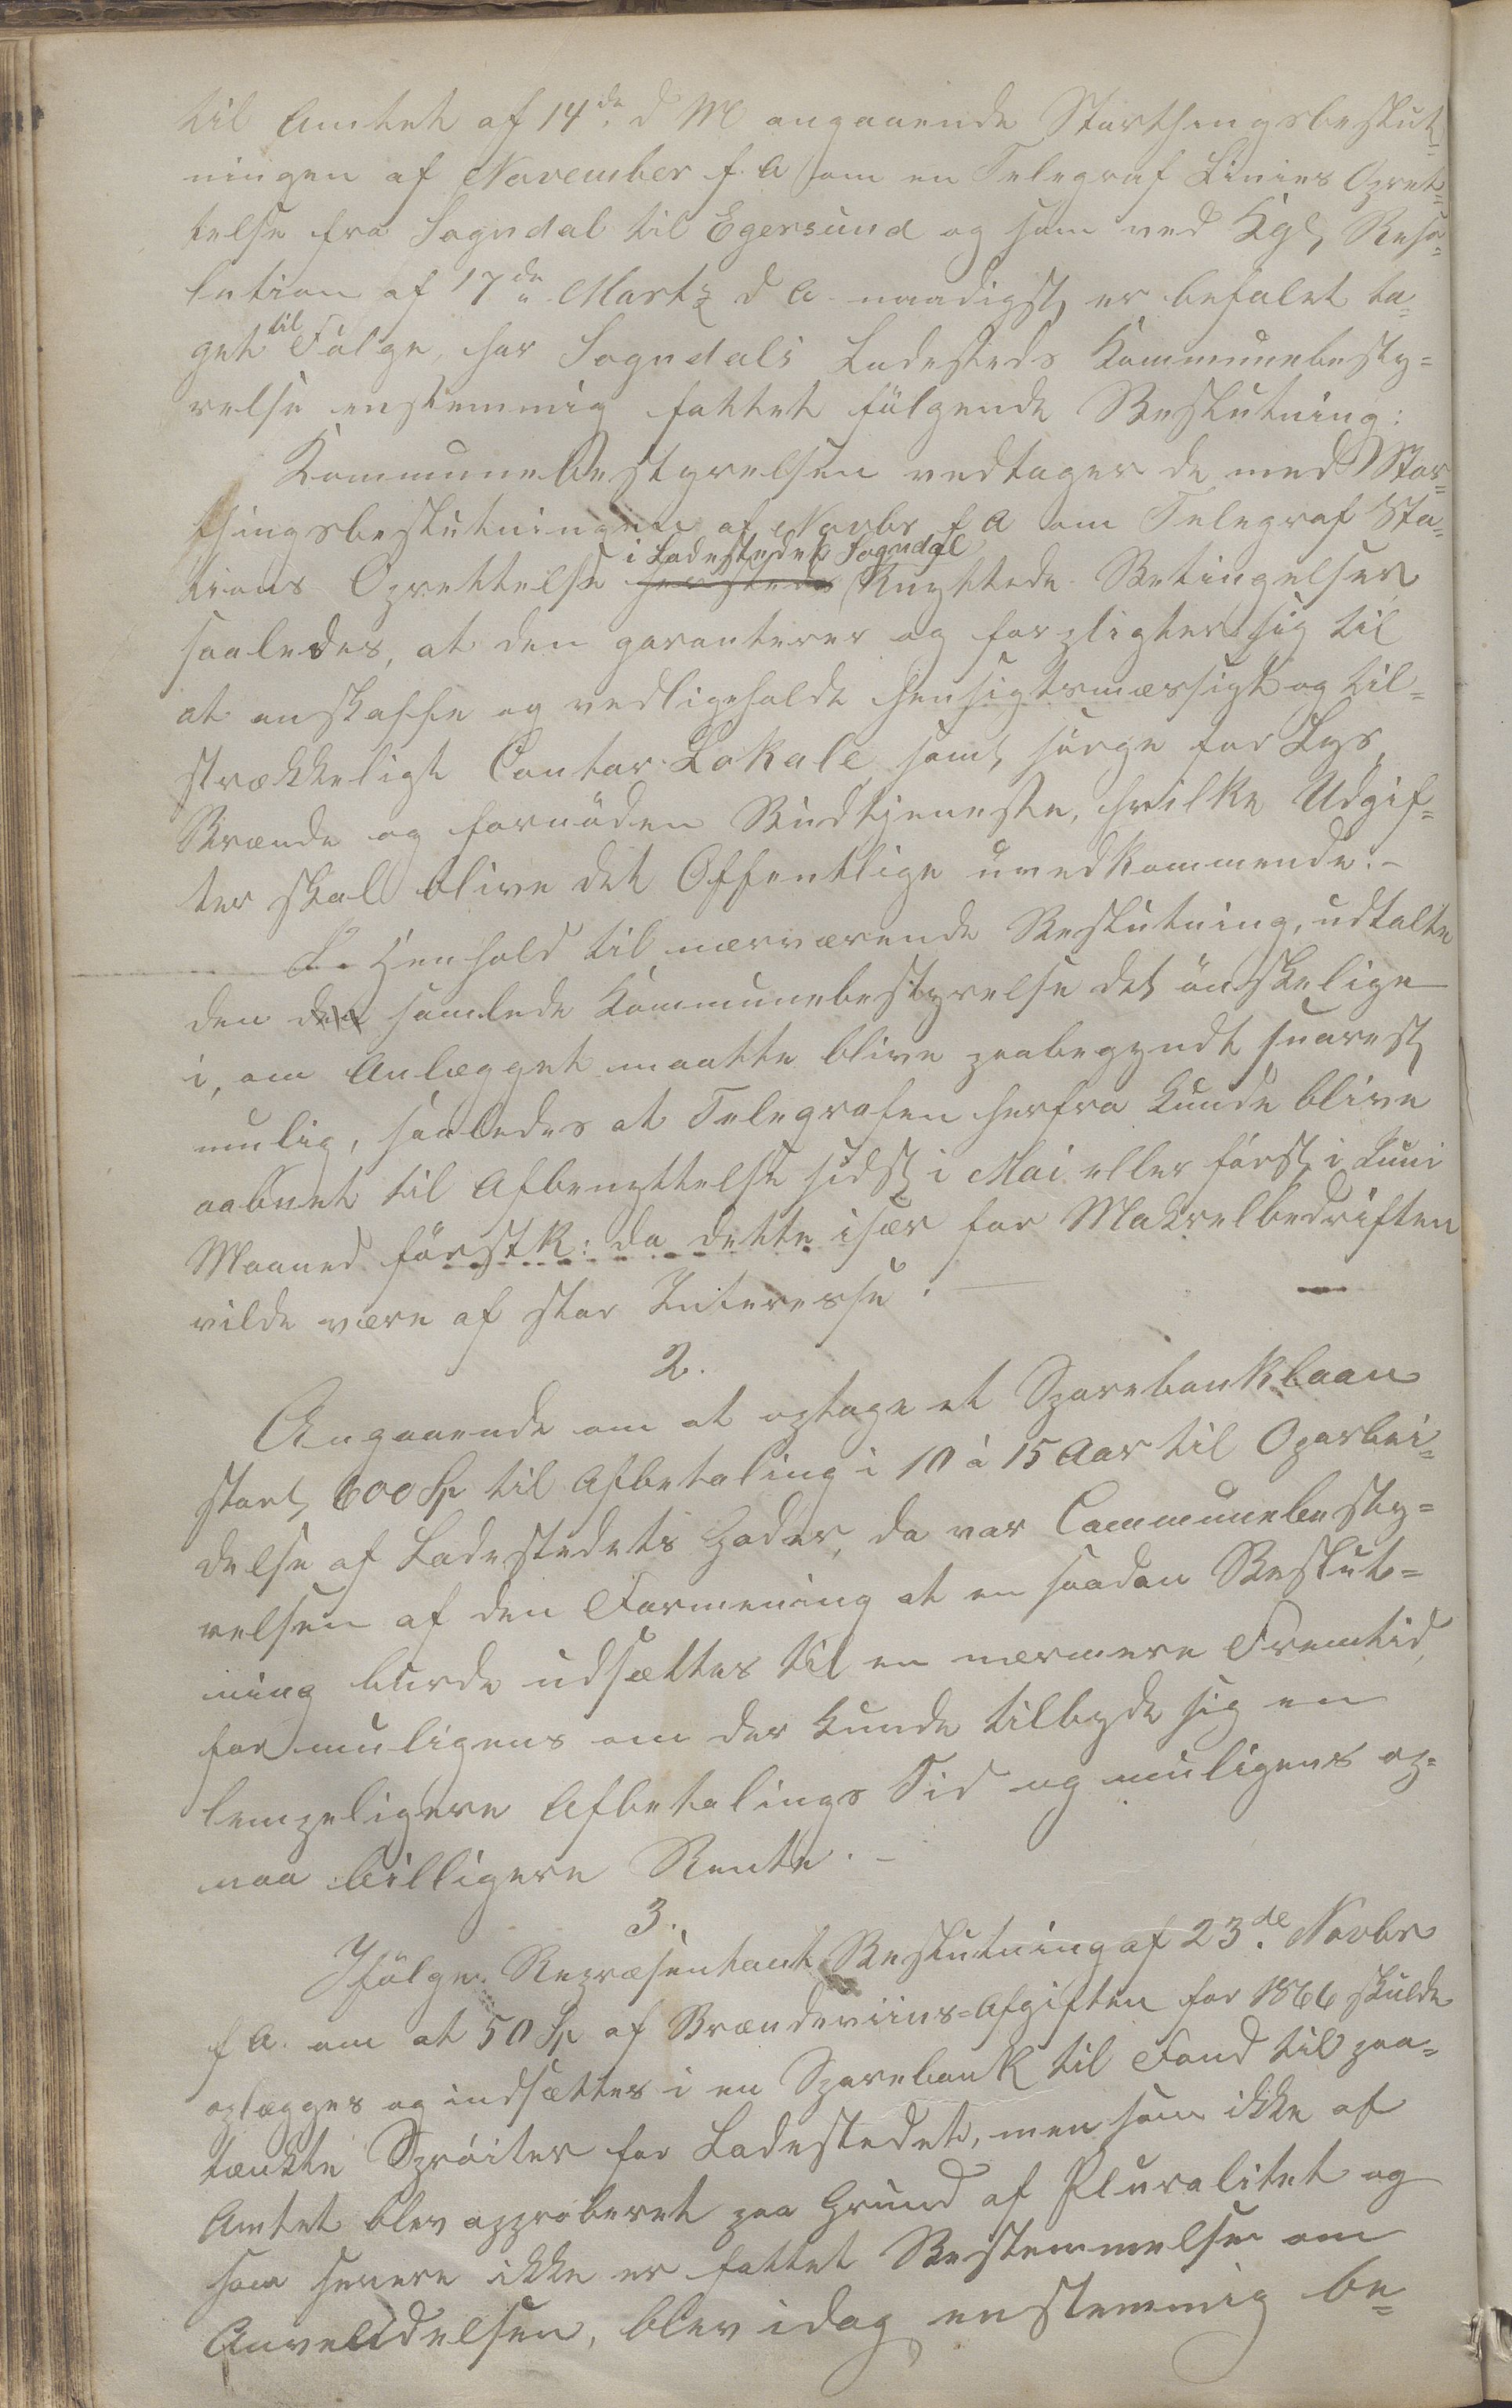 til Amtet af 14de d M angaaende Storthingsbeslut-
ningen af November f. A om en Telegraf Linies Opret-
telse fra Sogndal til Egersund og som ved Kgl. Reso-
lution af 17de Marts d A. naadigst er befalet ta-
get til Følge, har Sogndals Ladesteds Kommunebesty=
relse enstemmig fattet følgende Beslutning:
Kommunebestyrelsen vedtager de med Stor-
thingsbeslutningen af Novbr f A om Telegraf Sta-
tions Oprettelse i Ladestedet Sogndal Knyttede Betingelser
saaledes, at den garanterer og forpligter sig til
at anskaffe og vedligeholde hensigtsmæssigt og til-
strækkeligt Contor Lokale, samt sørge for Lys,
Brænde og fornøden Budtjeneste, hvilke Udgif-
ter skal blive det Offentlige uvedkommende.-
I Henhold til nærværende Beslutning, udtalte
den den samlede Kommunebestyrelse det ønskelige
i, om Anlægget maatte blive paabegyndt snarest
mulig, saaledes at Telegrafen herfra kunde blive
aabnet til Afbenyttelse sidst i Mai eller først i Juni
Maaned førstk: da dette især for Makrelbedriften
vilde være af stor Interesse.
2.
Angaaende om at optage et Sparebanklaan
stort 600 Sp til Afbetaling i 10 à 15 Aar til Oparbei-
delse af Ladestedets Gader, da var Communebesty=
relsen af den Formening at en saadan Beslut=
ning burde udsættes til en nærmere Fremtid,
for muligens om der kunde tilbyde sig en
lempeligere Afbetalings Tid og muligens op=
naa billigere Rente.-
3.
Ifølge Repræsentant Beslutning af 23de Novbr
f A. om at 50 Sp af Brændeviins=Afgiften for 1866 skulde
oplægges og indsættes i en Sparebank til Fond til paa=
tænkte Sprøiter for Ladestedet, men som ikke af
Amtet blev approberet paa Grund af Pluralitet og
som senere ikke er fattet Bestemmelse om
Anvendelsen, blev idag enstemmig be-